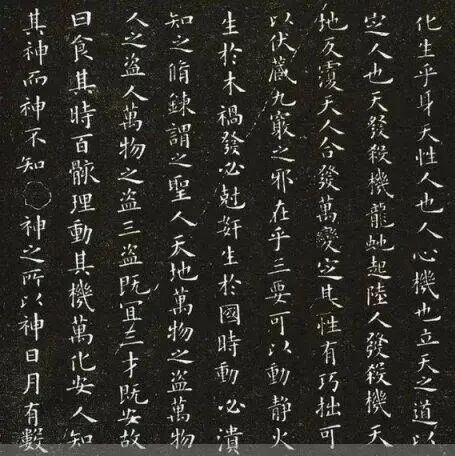 化生乎身天性人也人心機也立天之道以
定人也天發殺機龍虵起陸人發殺機天
地反覆天人合發萬變定其性有巧拙可
以伏藏九竅之邪在乎三要可以動靜火
生於木禍發必尅奸生於國時動必潰
知之脩鍊謂之聖人天地萬物之盜萬物
人之盜人萬物之盜三盜既宜三才既安故
曰食其時百骸理動其機萬化安人知
其神而神不知神之所以神日月有數